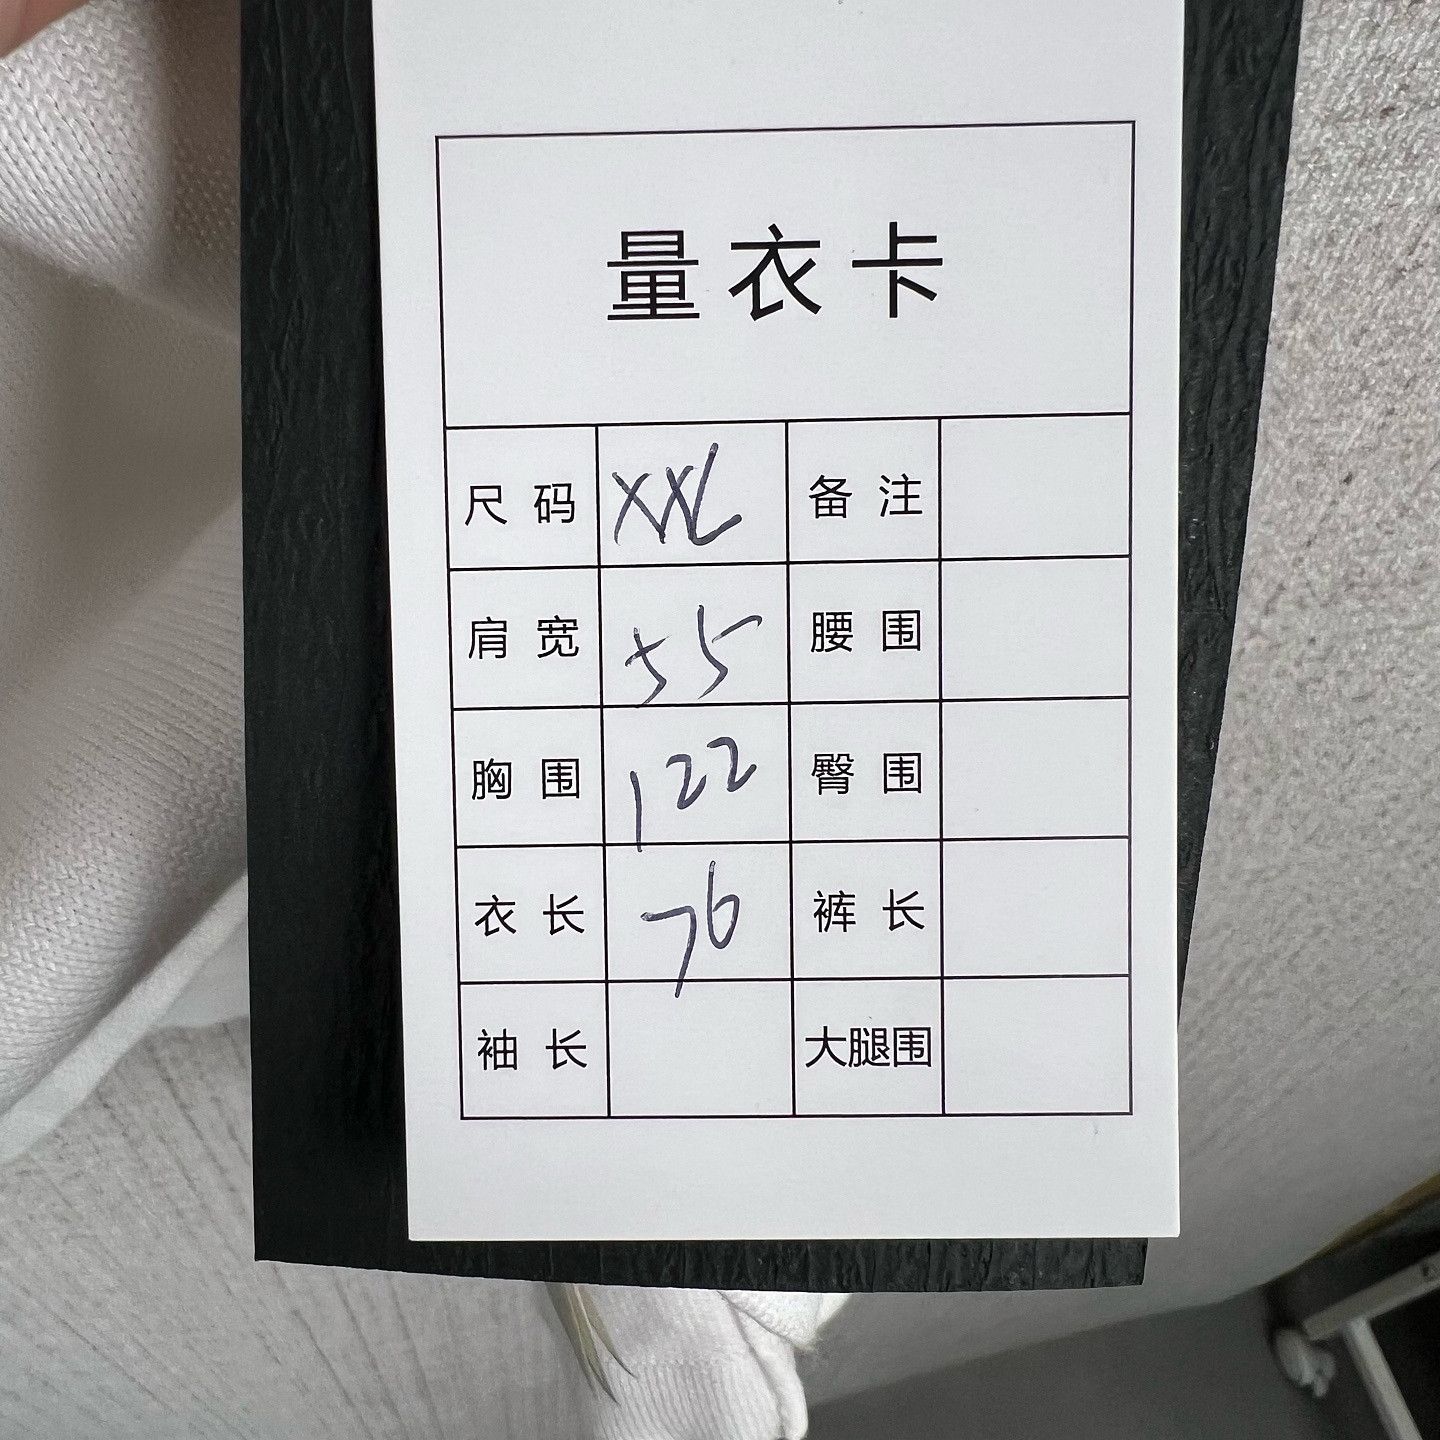 量衣卡
尺码 XXL 备注
肩宽 55 腰围
胸围 122 臀围
衣长 76 裤长
袖长 大腿围